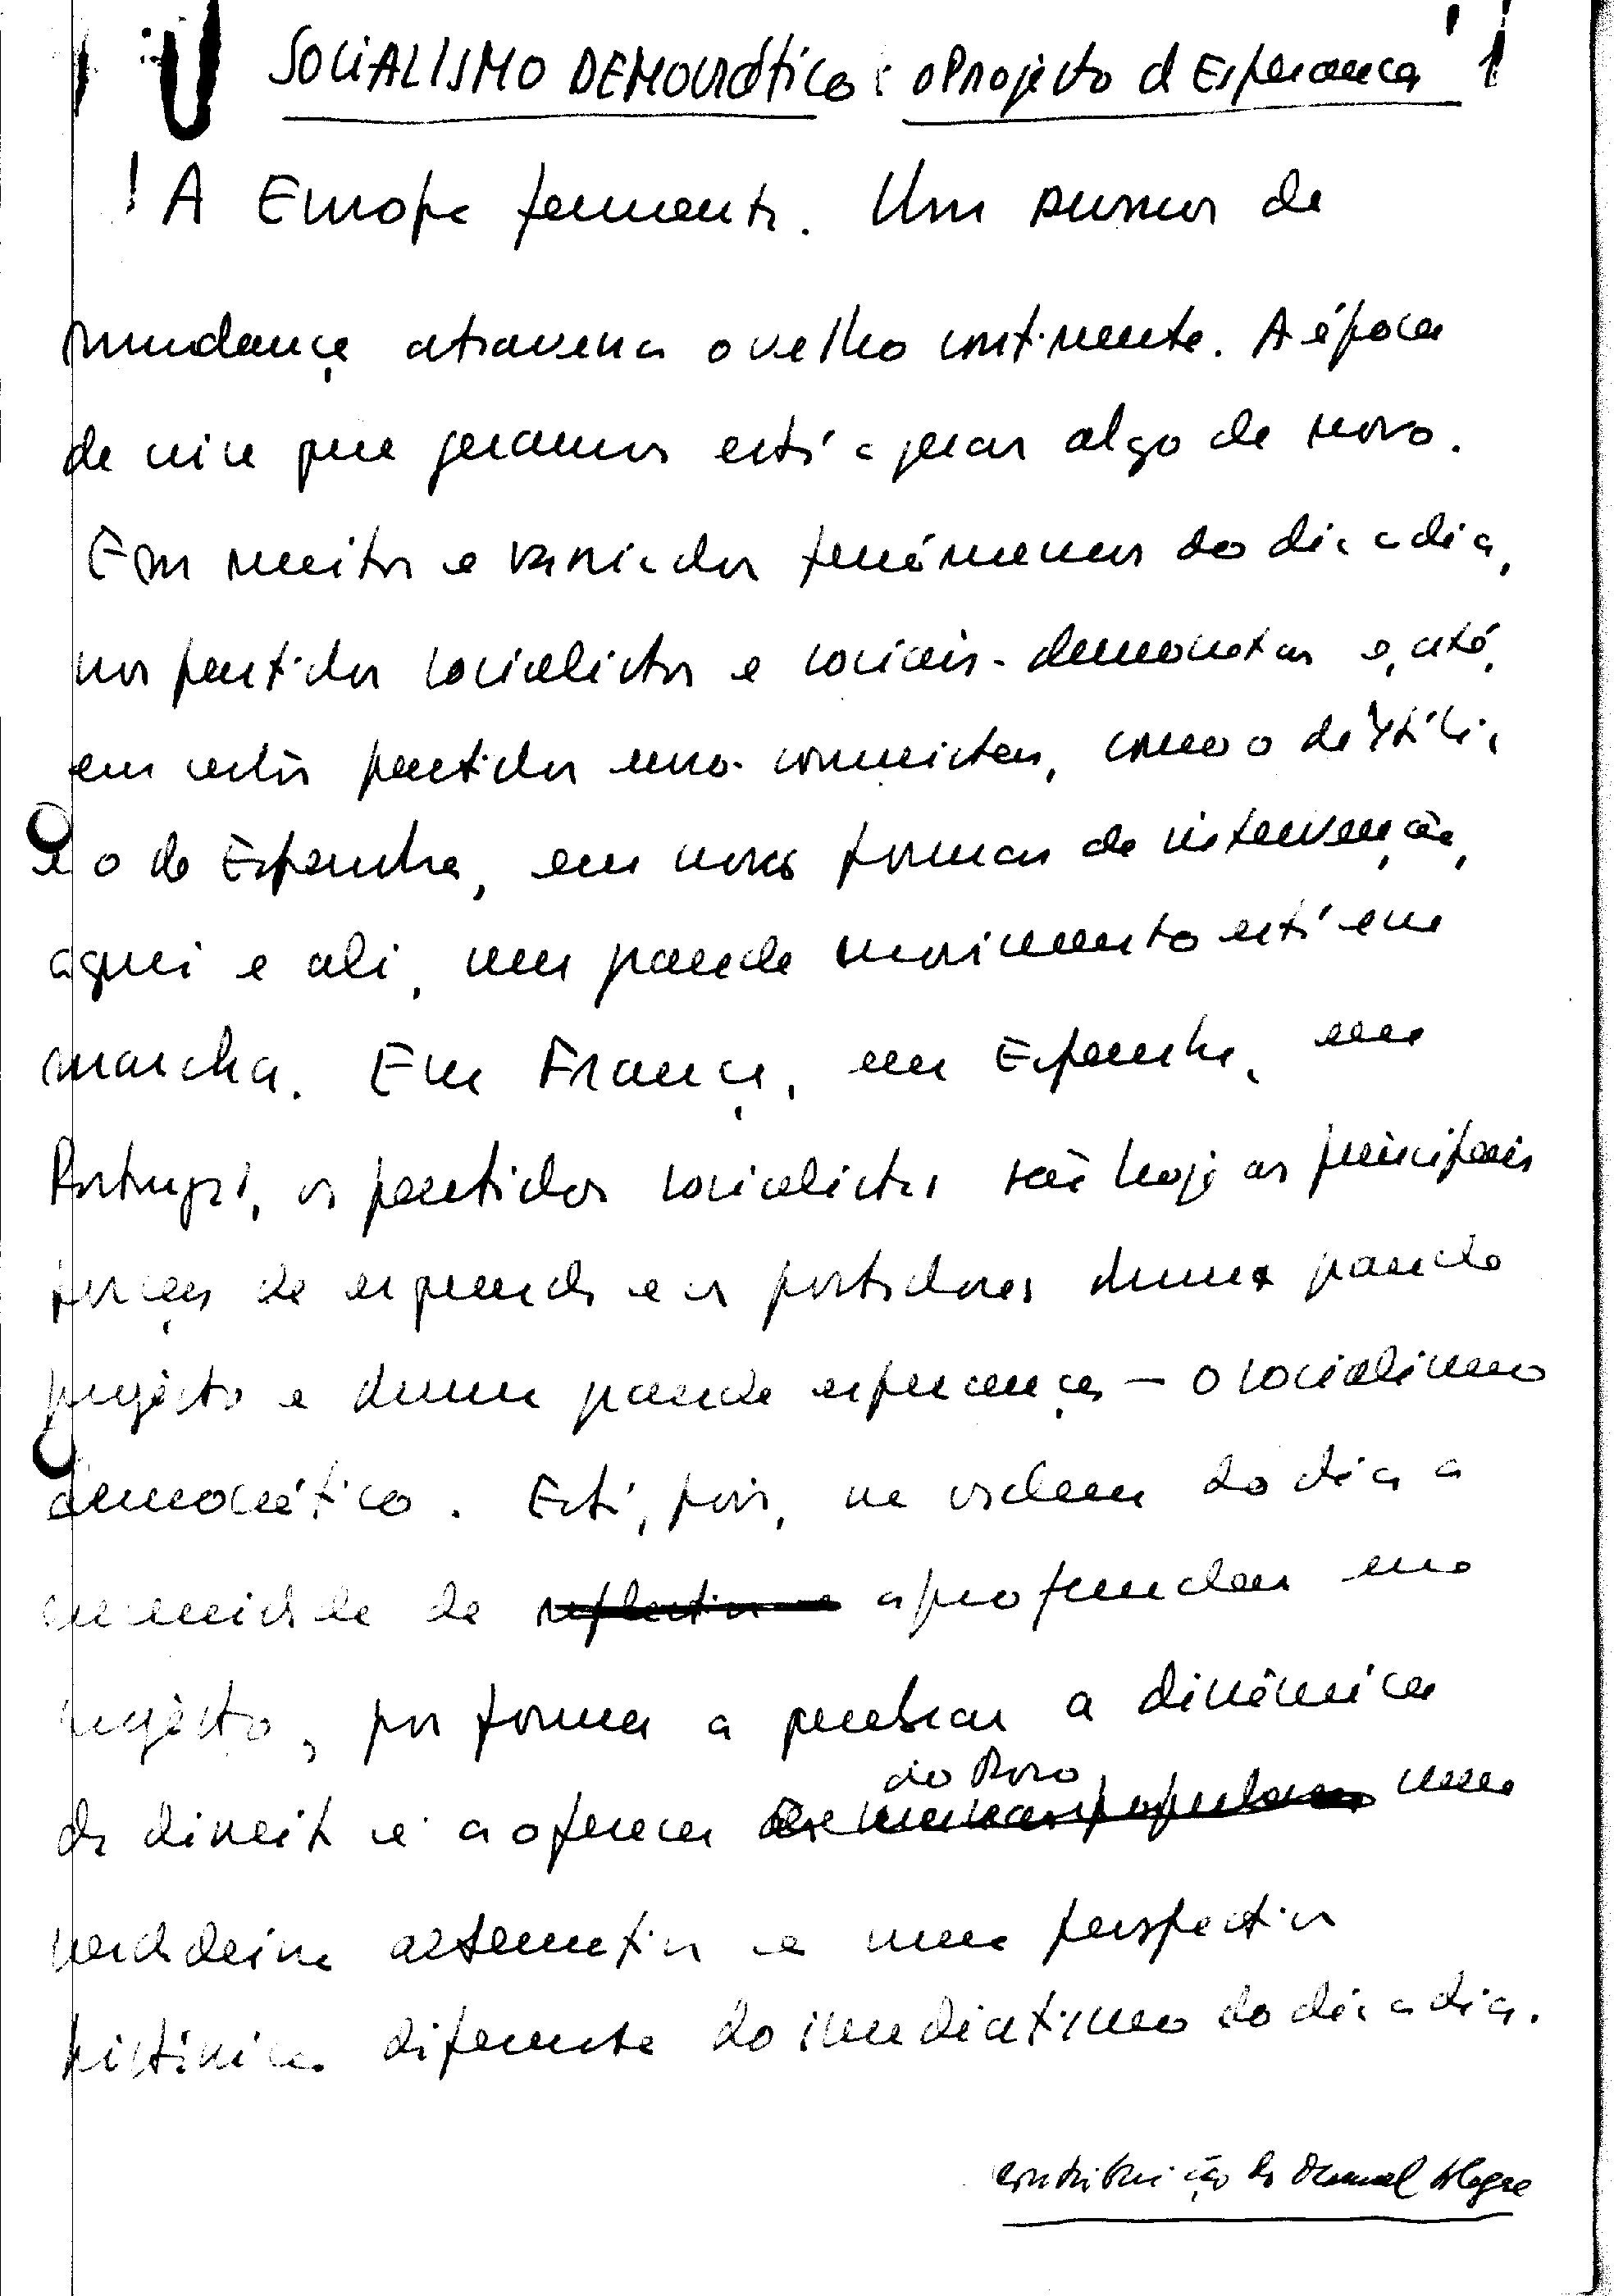 SOCIALISMO DEMOCRático: o Projecto d Esperança
A Europa fermenta. Um rumor de
mudança atravessa o velho continente. A época
de crise que geramos está a gerar algo de novo.
Em muitos e variados fenómenos do dia a dia,
nos partidos socialistas e sociais-democratas e, até,
em certos partidos euro-comunistas, como o de Itália
e o de Espanha, em novas formas de intervenção,
aqui e ali, um grande movimento está em
marcha. Em França, em Espanha, em
Portugal, os partidos socialistas são hoje as principais
forças de esquerda e os portadores dum grande
projecto e duma grande esperança – o socialismo
democrático. Está, pois, na ordem do dia a
necessidade de aprofundar esse
projecto, por forma a quebrar a dinâmica
da direita e a oferecer ao Povo uma
verdadeira alternativa e uma perspectiva
histórica diferente do imediatismo do dia a dia.
contribuição do Manuel Alegre